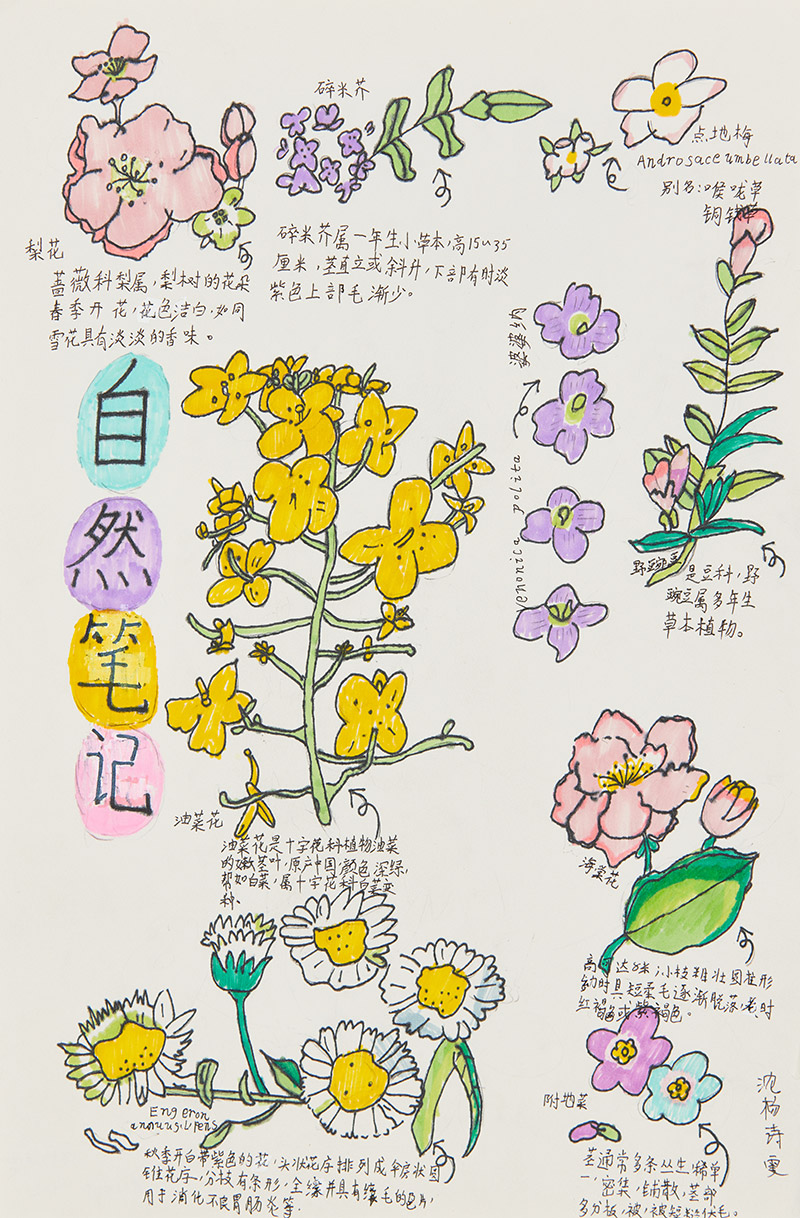 碎米芥
点地梅
Androsace umbellata
别名:喉咙草
铜钱草
梨花
蔷薇科梨属,梨树的花朵
春季开花,花色洁白,如同
雪花具有淡淡的香味。
碎米芥属一年生小草本,高15~35
厘米,茎直立或斜升,下部有时淡
紫色上部毛渐少。
自
然
笔
记
婆婆纳
Venonica polita
野豌豆
是豆科,野
豌豆属多年生
草本植物。
油菜花
油菜花是十字花科植物油菜
的嫩茎叶,原产中国,颜色深绿,
帮如白菜,属十字花科白菜变
种。
海棠花
高可达8米 小枝粗壮圆柱形
幼时具短柔毛逐渐脱落,老时
红褐色或紫褐色。
Engeron
annuus.L pens
秋季开白带紫色的花,头状花序排列成伞房状圆
锥花序,分枝有条形,全缘并具有缘毛的
用于消化不良胃肠炎等.
附地菜
茎通常多条丛生,稀单
一,密集,铺散,茎部
多分枝,被,被短糙伏毛。
沈杨诗雯